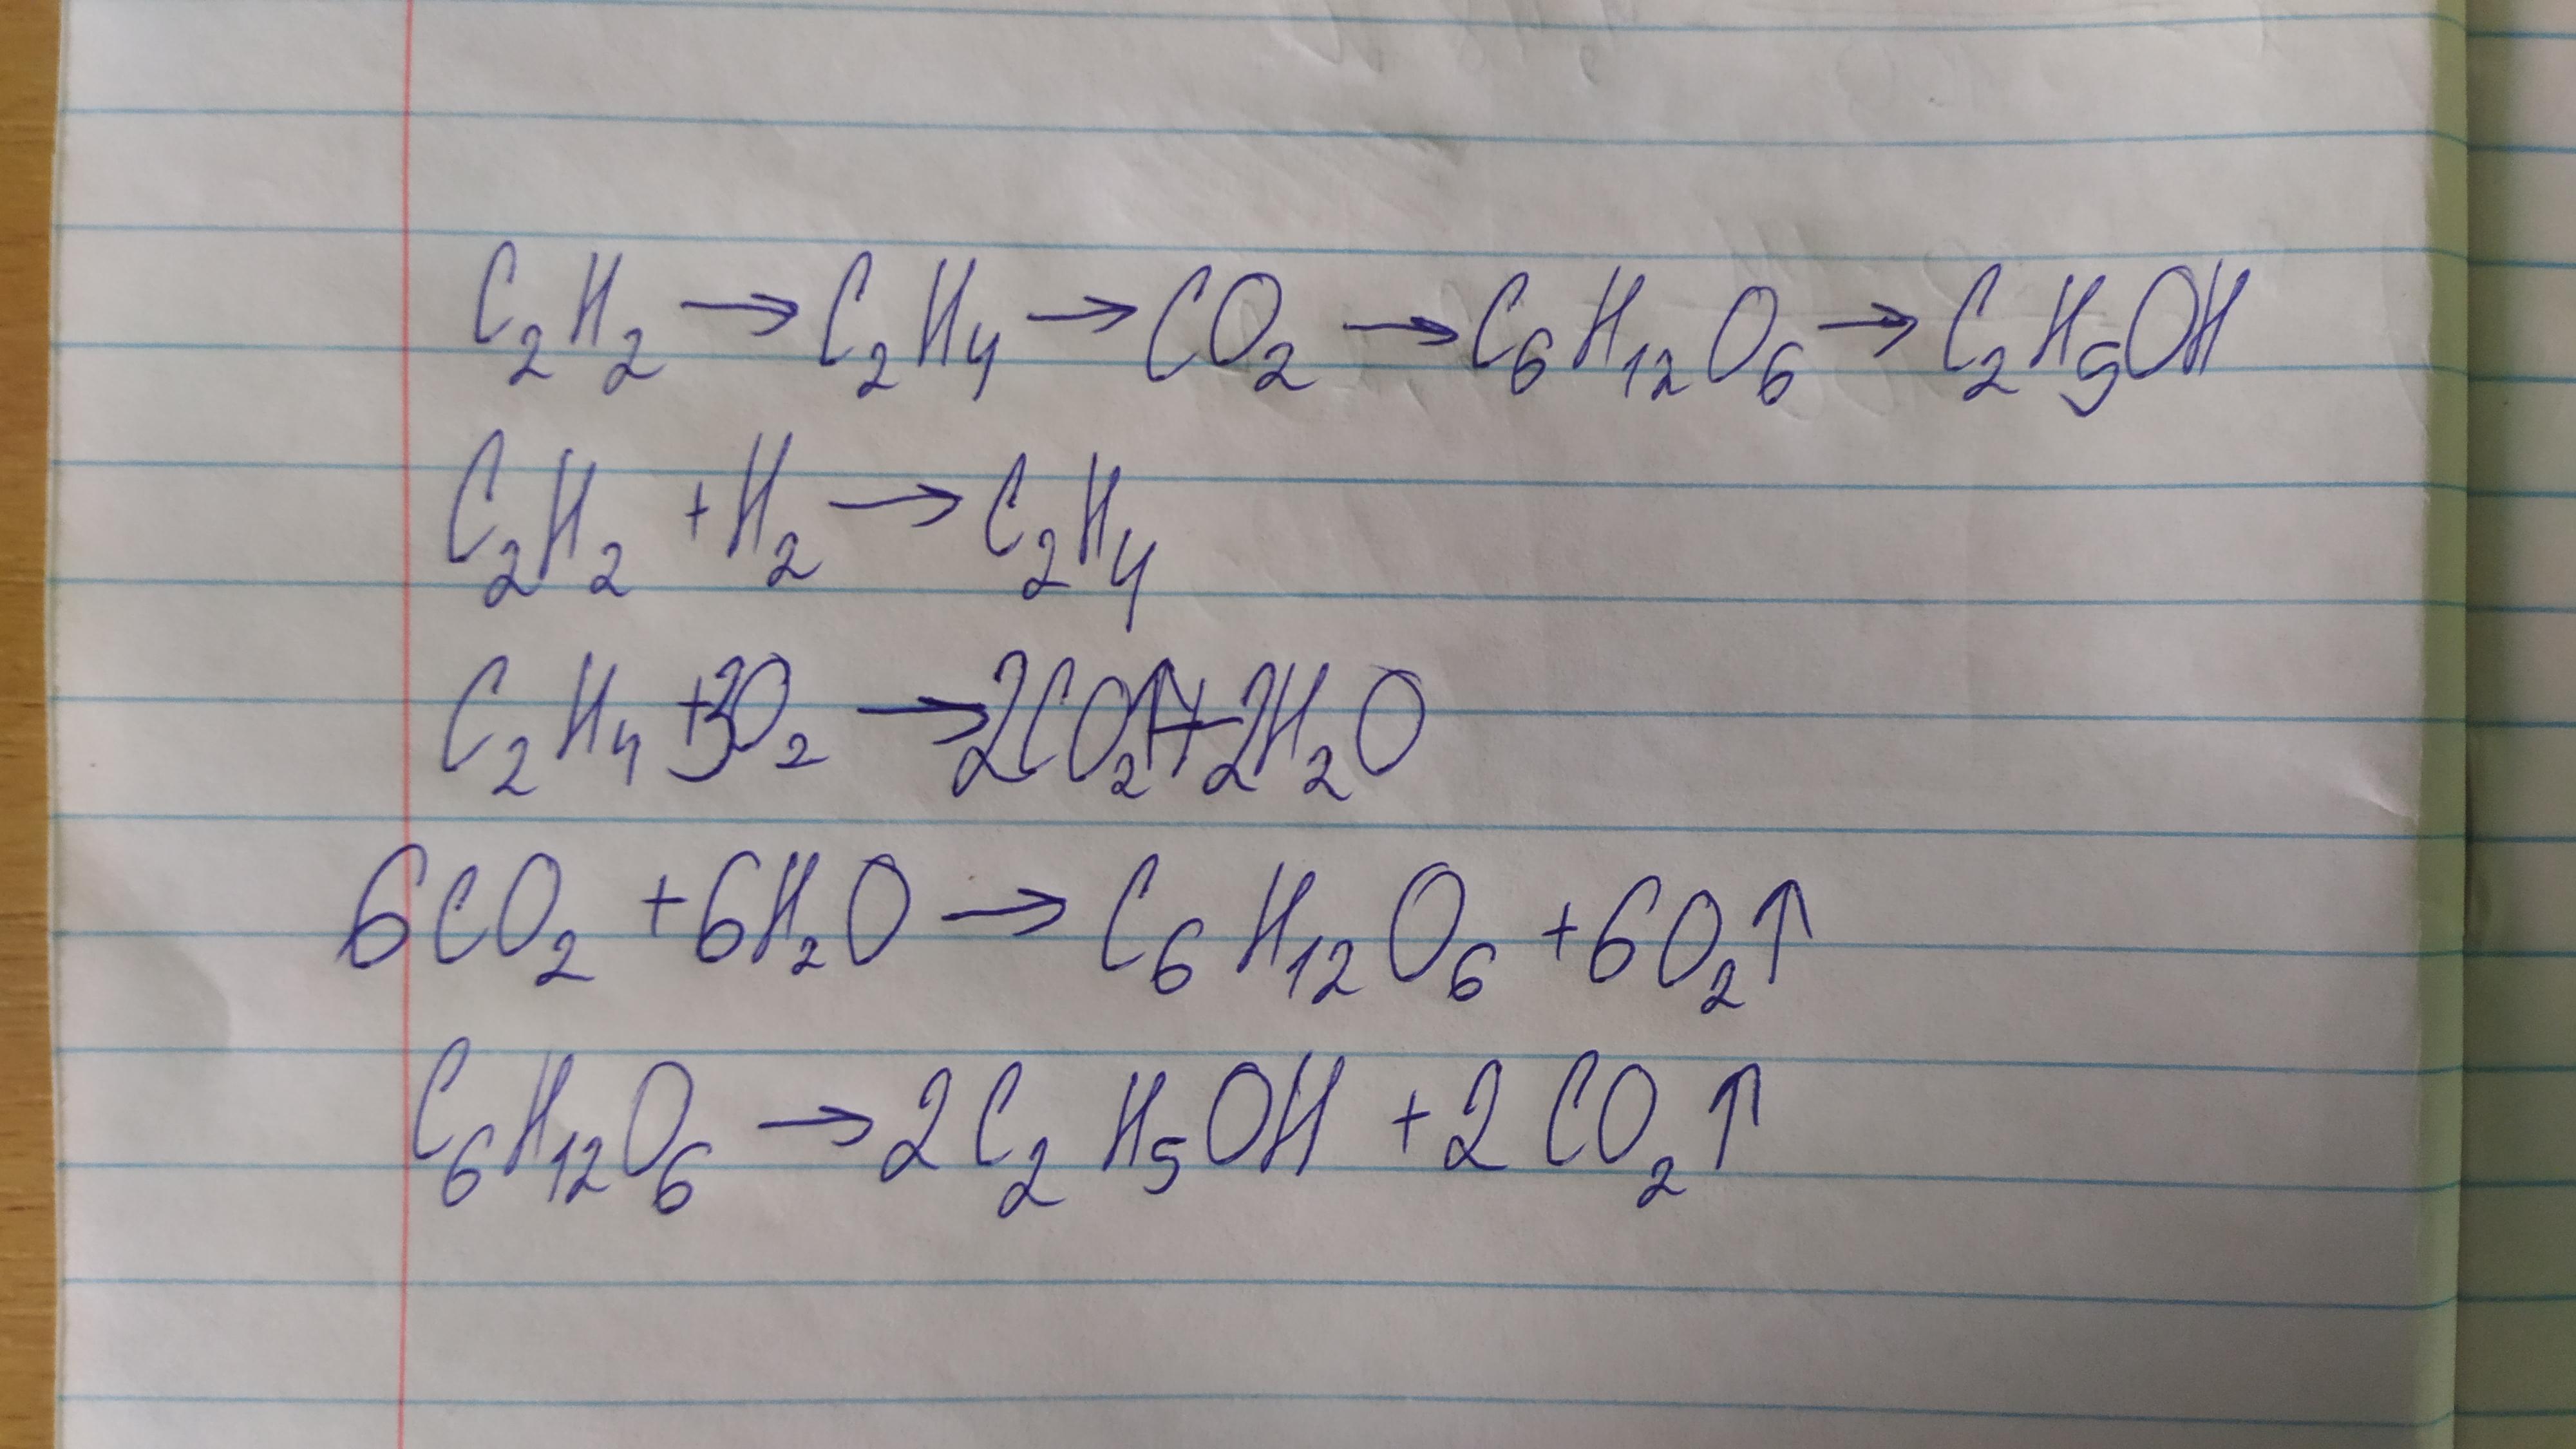 C₂H₂ → C₂H₄ → CO₂ → C₆H₁₂O₆ → C₂H₅OH
C₂H₂ + H₂ → C₂H₄
C₂H₄ + 3O₂ → 2CO₂↑ + 2H₂O
6CO₂ + 6H₂O → C₆H₁₂O₆ + 6O₂↑
C₆H₁₂O₆ → 2C₂H₅OH + 2CO₂↑